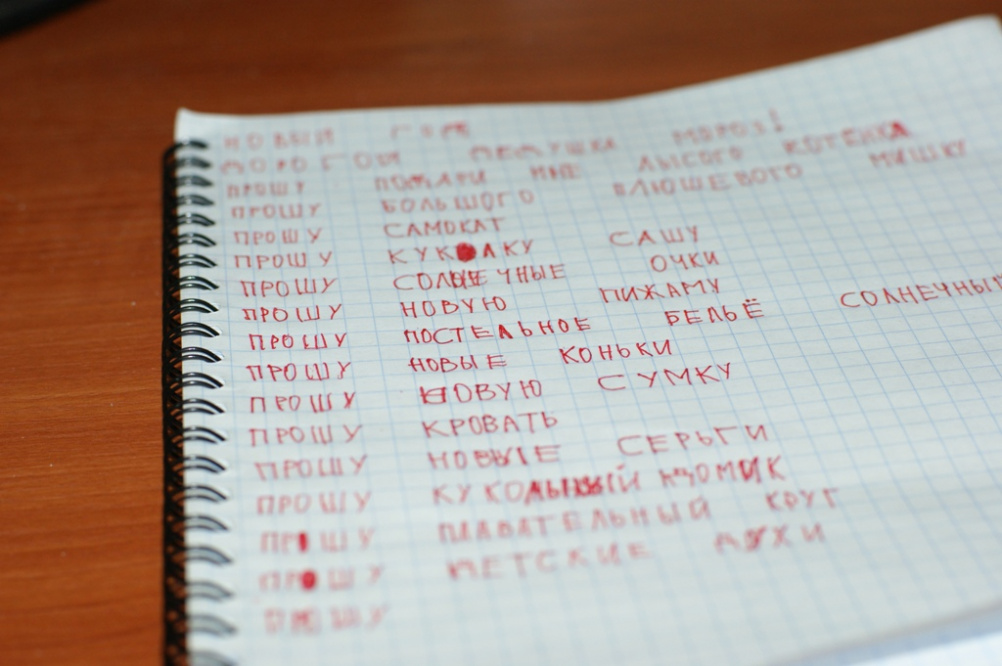 НОВЫЙ ГОД
ДОРОГОЙ ДЕДУШКА МОРОЗ!
ПРОШУ ПОДАРИ МНЕ ЛЫСОГО КОТЕНКА
ПРОШУ БОЛЬШОГО ПЛЮШЕВОГО МИШКУ
ПРОШУ САМОКАТ
ПРОШУ КУКОЛКУ САШУ
ПРОШУ СОЛНЕЧНЫЕ ОЧКИ
ПРОШУ НОВУЮ ПИЖАМУ
ПРОШУ ПОСТЕЛЬНОЕ БЕЛЬЁ СОЛНЕЧНЫ
ПРОШУ НОВЫЕ КОНЬКИ
ПРОШУ НОВУЮ СУМКУ
ПРОШУ КРОВАТЬ
ПРОШУ НОВЫЕ СЕРЬГИ
ПРОШУ КУКОЛЬНЫЙ ДОМИК
ПРОШУ ПЛАВАТЕЛЬНЫЙ КРУГ
ПРОШУ ДЕТСКИЕ ДУХИ
ПРОШУ